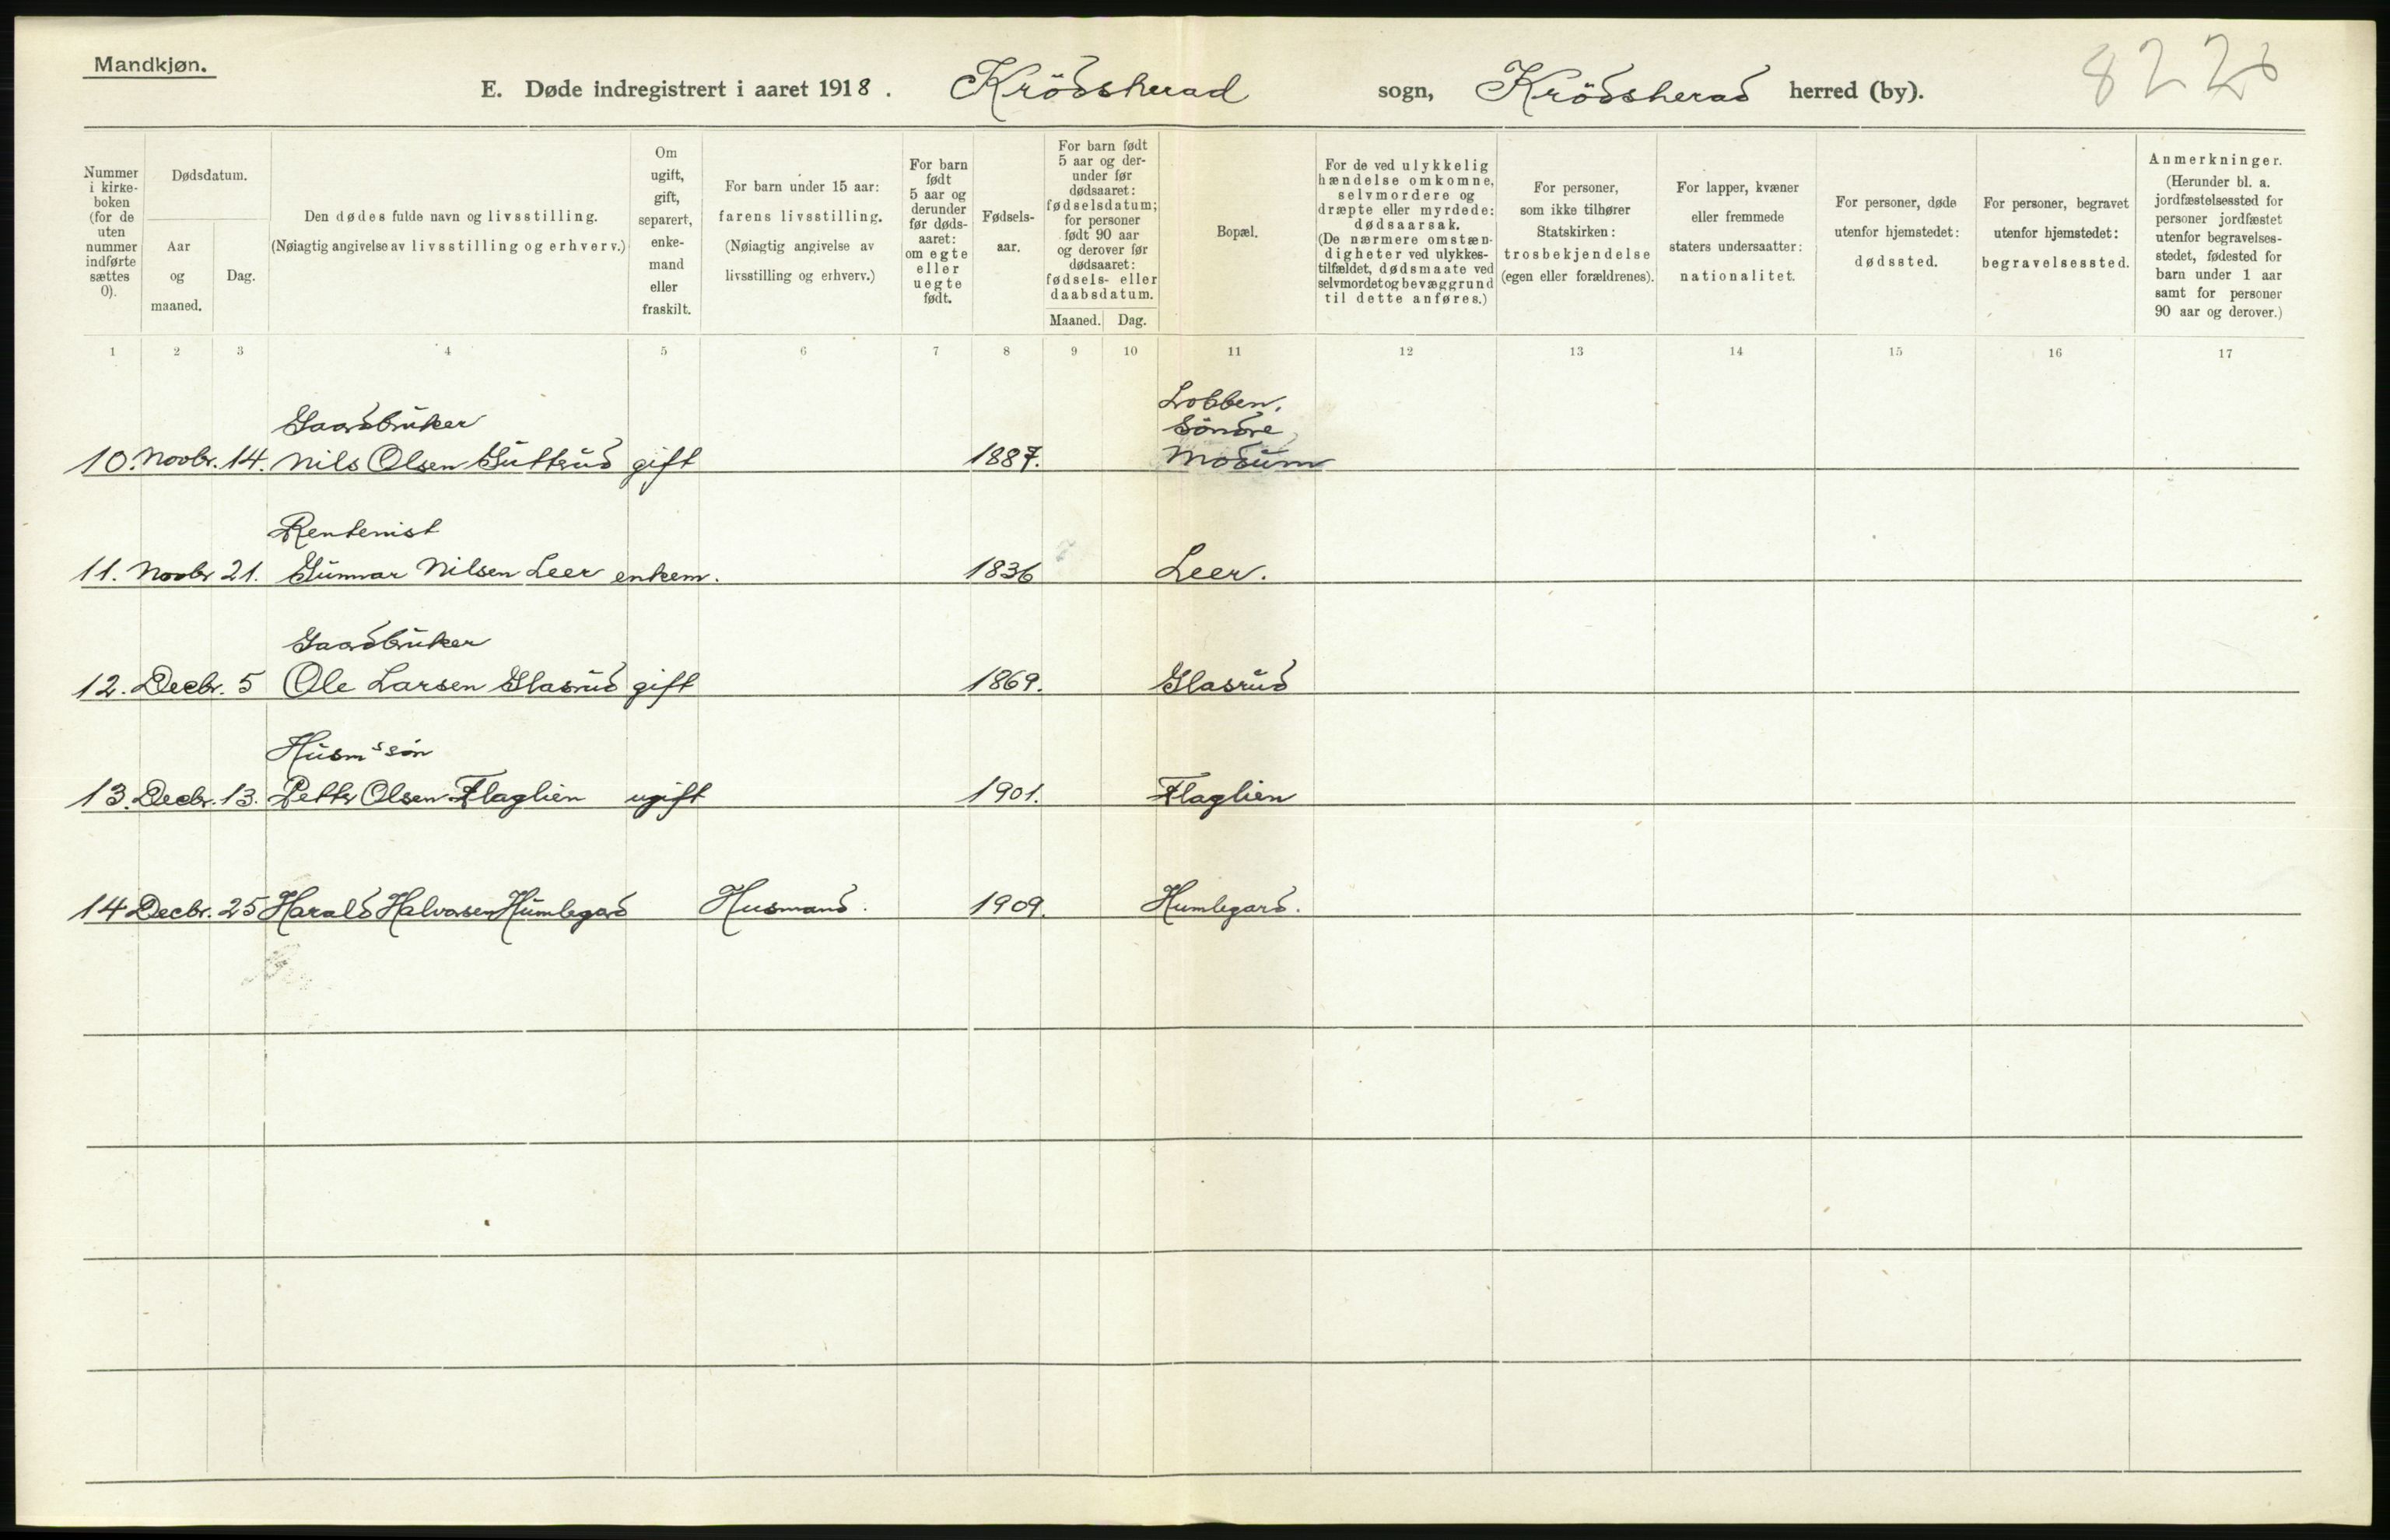 Mandkjøn.
E. Døde indregistrert i aaret 1918. Krödsherad sogn, Krödsherad herred (by).
Nummer i kirke- boken (for de uten nummer indførte sættes 0).
Dødsdatum.
Aar og maaned.
Dag.
Den dødes fulde navn og livsstilling.
(Nøiagtig angivelse av livsstilling og erhverv.)
Om ugift, gift, separert, enke- mand eller fraskilt.
For barn under 15 aar: farens livsstilling.
(Nøiagtig angivelse av livsstilling og erhverv.)
For barn født 5 aar og derunder før døds- aaret: om egte eller uegte født.
Fødsels- aar.
For barn født 5 aar og der- under før dødsaaret: fødselsdatum; for personer født 90 aar og derover før dødsaaret: fødsels- eller daabsdatum.
Maaned. Dag.
Bopæl.
For de ved ulykkelig hændelse omkomne, selvmordere og dræpte eller myrdede: dødsaarsak.
(De nærmere omstæn- digheter ved ulykkes- tilfældet, dødsmaate ved selvmordet og bevæggrund til dette anføres.)
For personer, som ikke tilhører Statskirken: trosbekjendelse (egen eller forældrenes).
For lapper, kvæner eller fremmede staters undersaatter: nationalitet.
For personer, døde utenfor hjemstedet: dødssted.
For personer, begravet utenfor hjemstedet: begravelsessted.
Anmerkninger.
(Herunder bl. a. jordfæstelsessted for personer jordfæstet utenfor begravelses- stedet, fødested for barn under 1 aar samt for personer 90 aar og derover.)
1 2 3 4 5 6 7 8 9 10 11 12 13 14 15 16 17
Gaardbruker Lobben, Söndre
10. Novbr. 14. Nils Olsen Guttrud gift 1887. Modum
Rentenist
11. Novbr 21. Gunnar Nilsen Leer enkem. 1836 Leer.
Gaardbruker
12. Decbr. 5 Ole Larsen Glasrud gift 1869. Glasrud
Husm s sön
13. Decbr. 13. Petter Olsen Flaglien ugift 1901. Flaglien
14 Decbr. 25 Harald Halvorsen Humlegard Husmand. 1909. Humlegard.